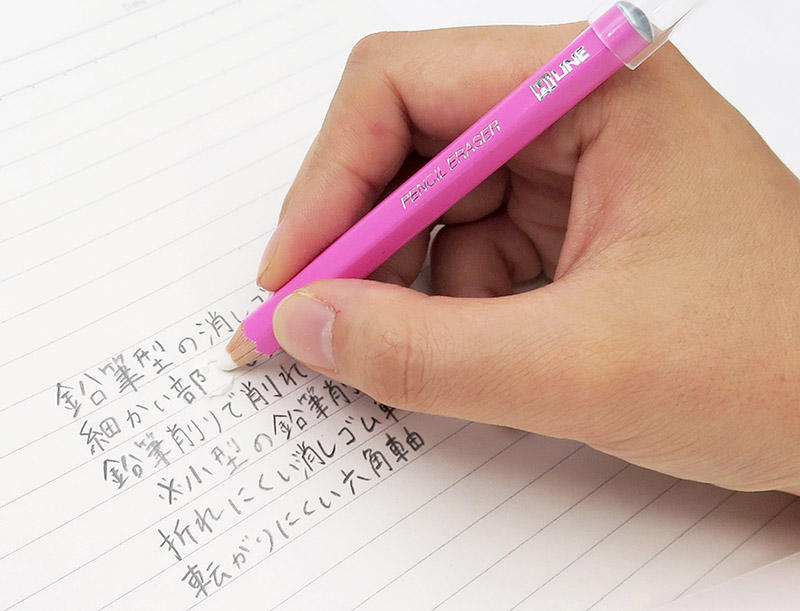 HiLINE
PENCIL ERASER
鉛筆型の消しゴ
細かい部
鉛筆削りで削れ
※小型の鉛筆削
折れにくい消しゴム
転がりにくい六角軸